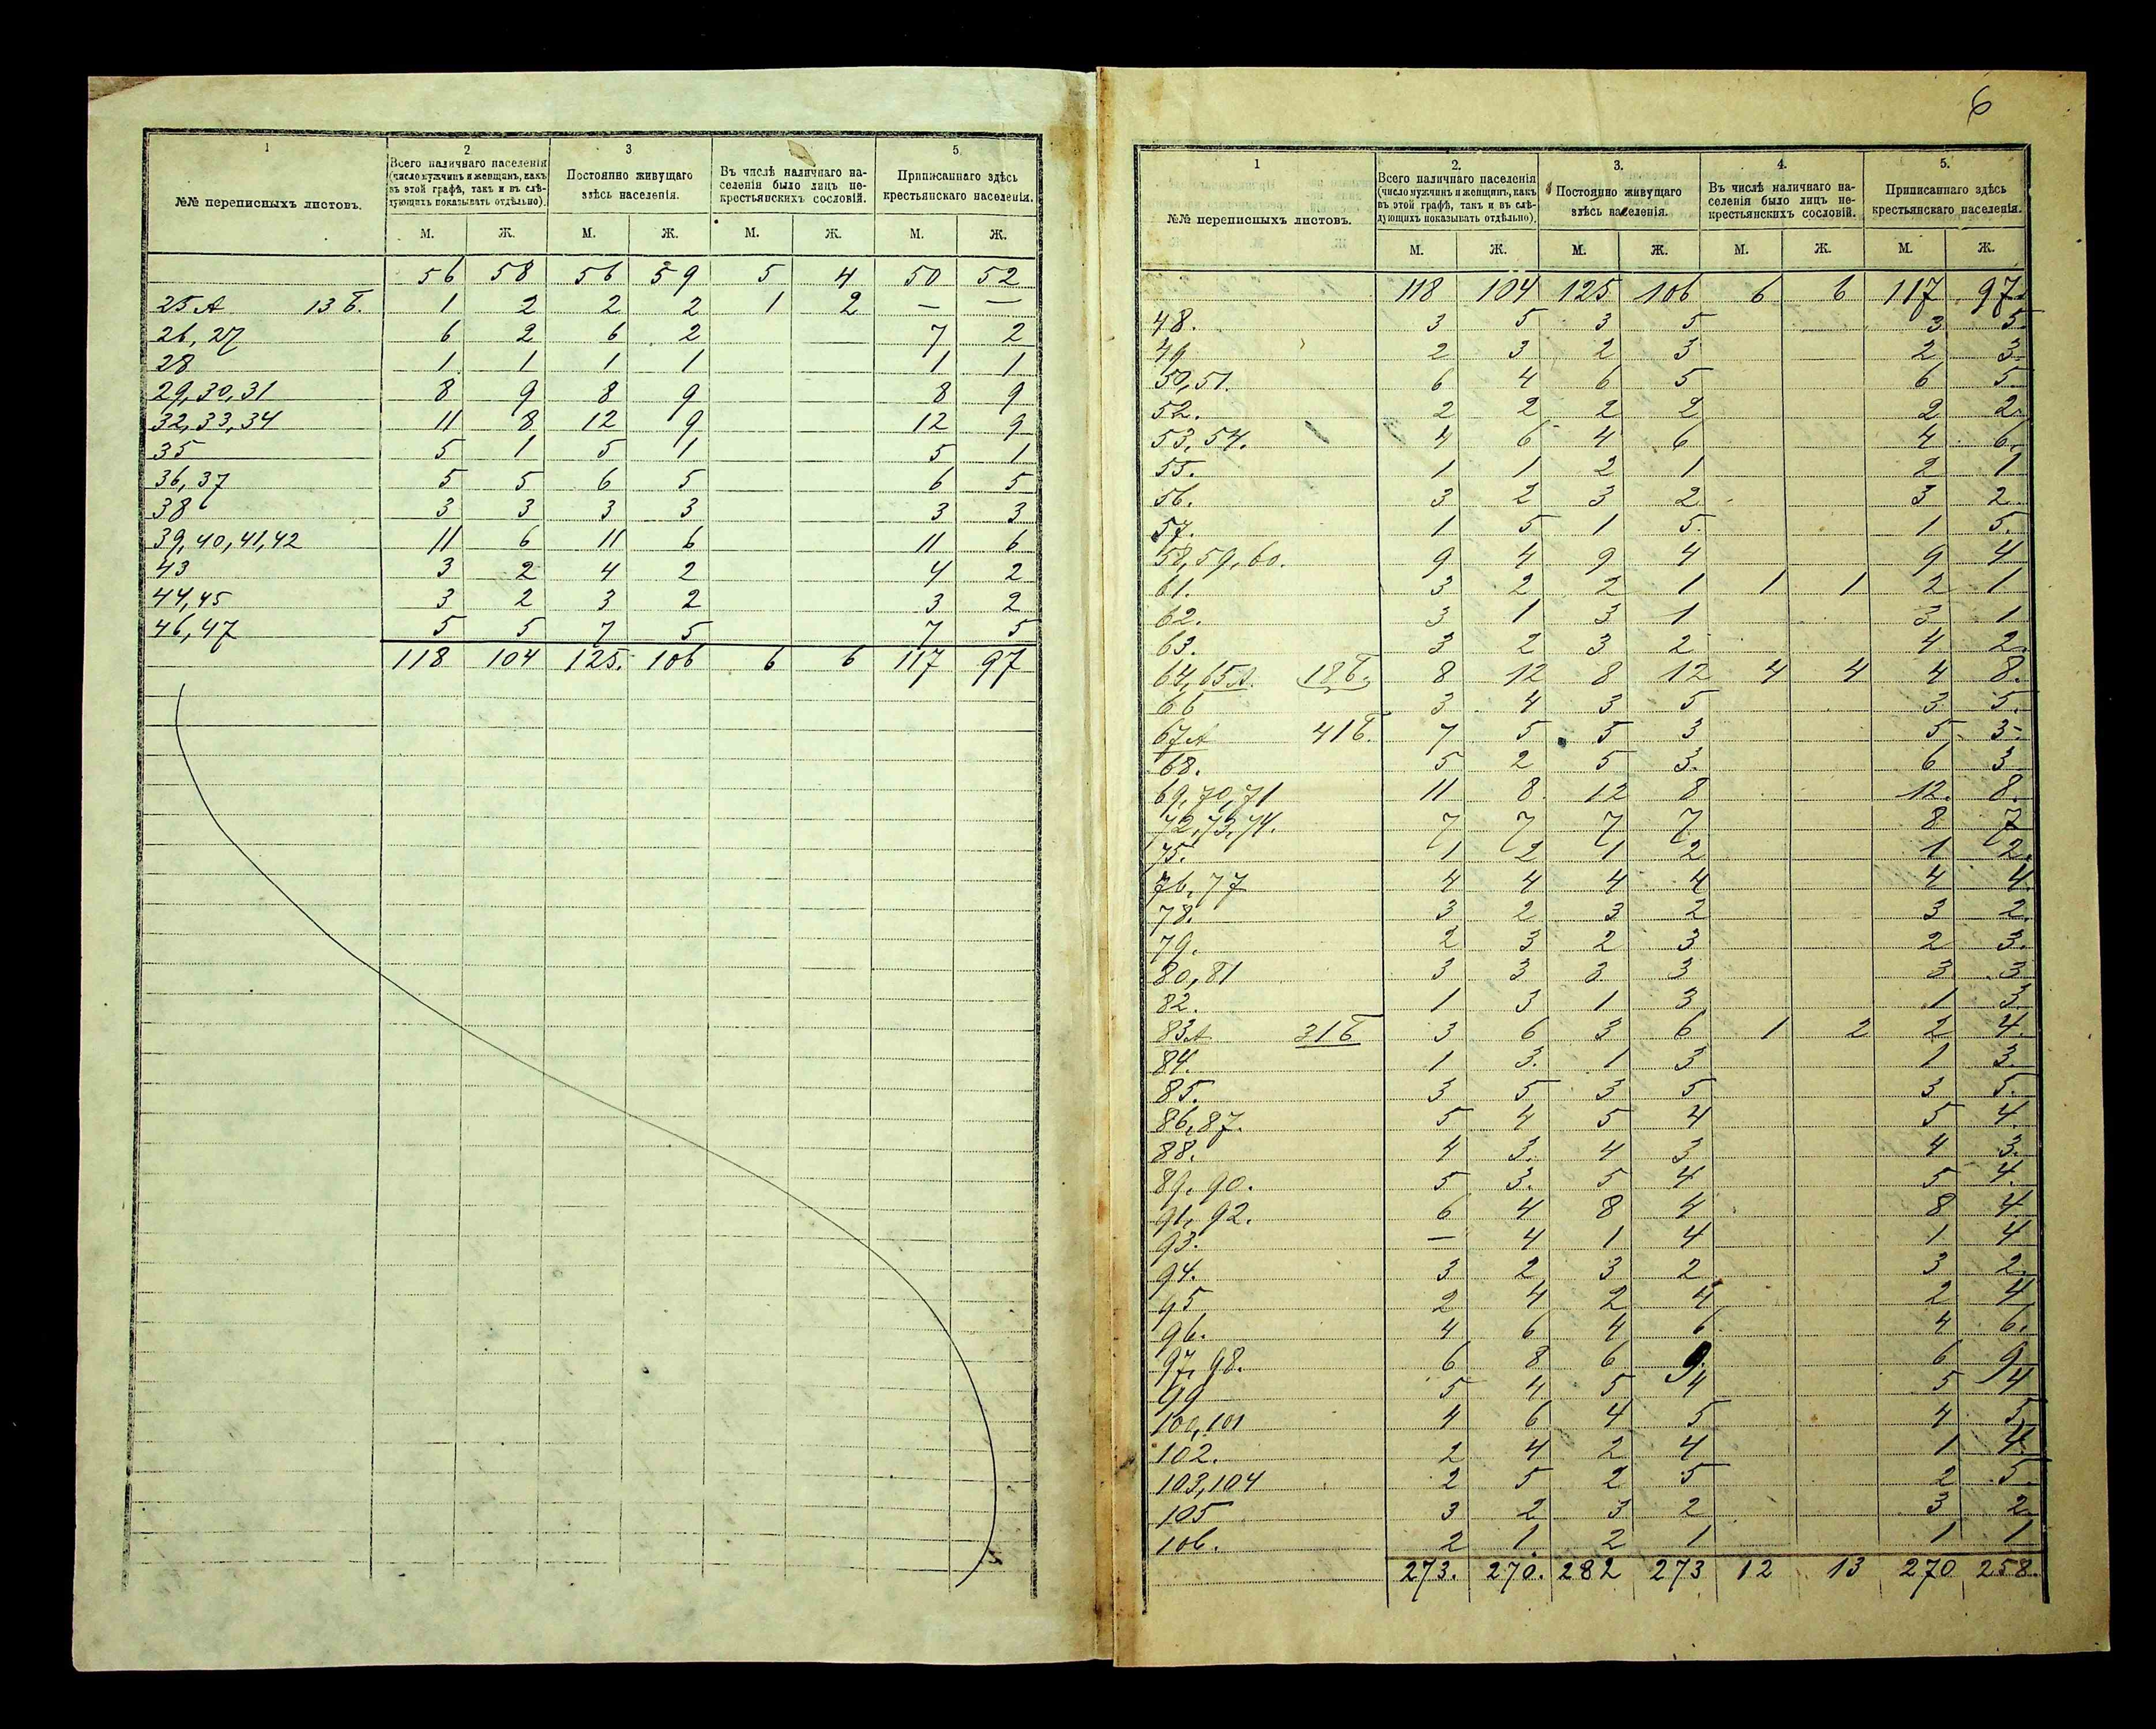 1
2
3
5
№№ переписныхъ листовъ.
Всего наличнаго населенія (число мужчинъ и женщинъ, какъ въ этой графѣ, такъ и въ слѣдующихъ показывать отдѣльно).
Постоянно живущаго здѣсь населенія.
Въ числѣ наличнаго населенія было лицъ некрестьянскихъ сословій.
Приписаннаго здѣсь крестьянскаго населенія.
М. Ж. М. Ж. М. Ж. М. Ж.
56 58 56 59 5 4 50 52
25 А 13 Б. 1 2 2 2 1 2 — —
26, 27 6 2 6 2 7 2
28 1 1 1 1 1 1
29, 30, 31 8 9 8 9 8 9
32, 33, 34 11 8 12 9 12 9
35 5 1 5 1 5 1
36, 37 5 5 6 5 6 5
38 3 3 3 3 3 3
39, 40, 41, 42 11 6 11 6 11 6
43 3 2 4 2 4 2
44, 45 3 2 3 2 3 2
46, 47 5 5 7 5 7 5
118 104 125. 106 6 6 117 97
6
1
2.
3.
4.
5.
№№ переписныхъ листовъ.
Всего наличнаго населенія (число мужчинъ и женщинъ, какъ въ этой графѣ, такъ и въ слѣдующихъ показывать отдѣльно).
Постоянно живущаго здѣсь населенія.
Въ числѣ наличнаго населенія было лицъ некрестьянскихъ сословій.
Приписаннаго здѣсь крестьянскаго населенія.
М. Ж. М. Ж. М. Ж. М. Ж.
118 104 125 106 6 6 117 97.
48. 3 5 3 5 3 5.
49 2 3 2 3 2 3
50, 51. 6 4 6 5 6 5
52. 2 2 2 2 2 2.
53, 54. 4 6 4 6 4 6.
55. 1 1 2 1 2 1
56. 3 2 3 2 3 2
57. 1 5 1 5. 1 5.
58, 59, 60. 9 4 9 4 9 4
61. 3 2 2 1 1 1 2 1
62. 3 1 3 1 3 1
63. 3 2 3 2 4 2.
64, 65 А. 18 Б. 8 12 8 12 4 4 4 8.
66 3 4 3 5 3 5.
67 А 41 Б. 7 5 5 3 5 3
68. 5 2 5 3. 6 3
69, 70, 71 11 8 12 8 12. 8.
72, 73, 74. 7 7 7 7 8 7
75. 1 2 1 2 1 2.
76, 77 4 4 4 4 4 4
78. 3 2 3 2 3 2.
79. 2 3 2 3 2 3.
80, 81 3 3 3 3 3 3
82. 1 3 1 3 1 3
83 А 31 Б 3 6 3 6 1 2 2 4.
84. 1 3. 1 3 1 3.
85. 3 5 3 5 3 5.
86, 87. 5 4 5 4 5 4.
88. 4 3. 4 3 4 3.
89, 90. 5 3. 5 4 5 4.
91, 92. 6 4 8 4 8 4
93. — 4 1 4 1 4
94. 3 2 3 2 3 2.
95 2 4 2 4 2 4
96. 4 6 4 6 4 6.
97, 98. 6 8 6 9. 6 9
99 5 4 5 4 5 4
100, 101 4 6 4 5 4 5
102. 2 4 2 4 1 4.
103, 104 2 5 2 5 2 5
105 3 2 3 2 3 2
106. 2 1. 2 1 1 1
273. 270. 282 273 12 13 270 258.